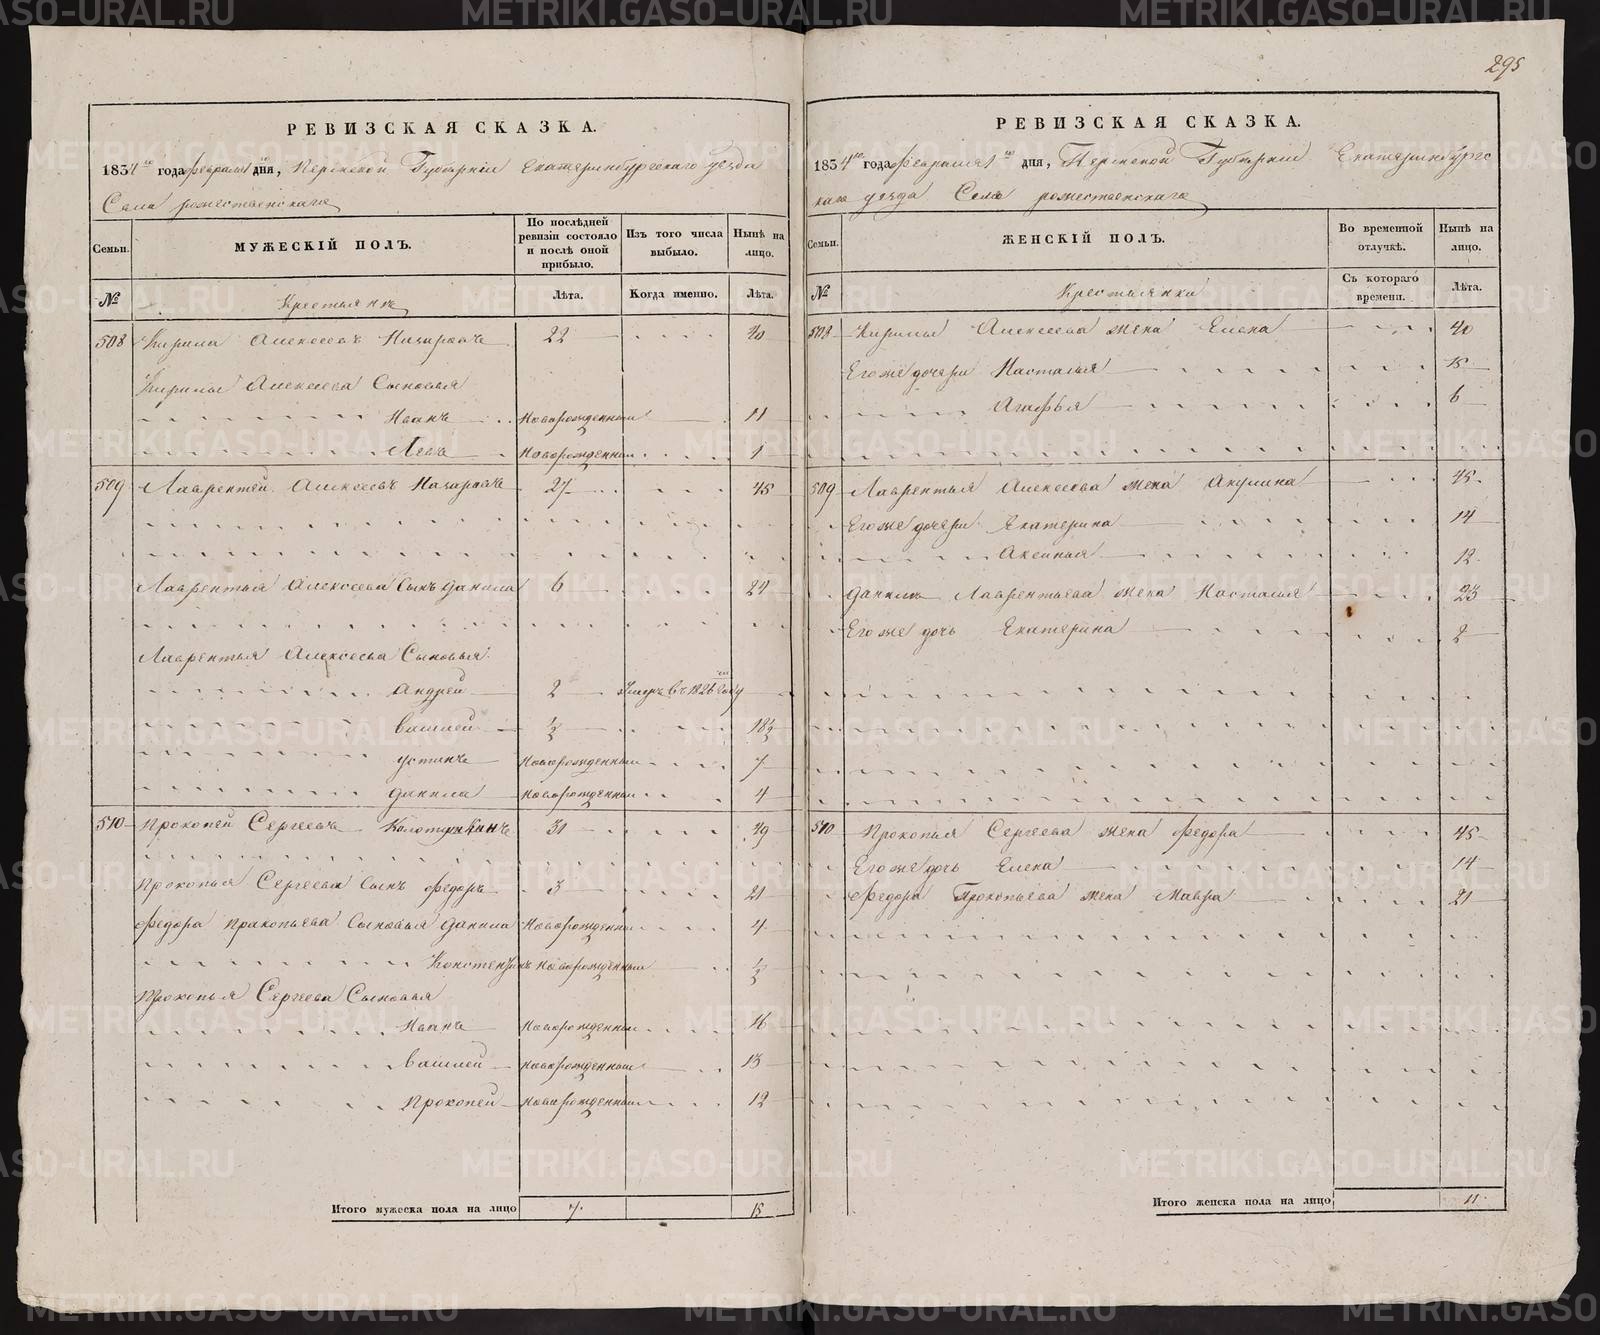 295
РЕВИЗСКАЯ СКАЗКА.
1834 года февраля дня, Пермской Губерніи Екатеринбургскаго уезда
Села рожественскаго
Семьи. МУЖЕСКІЙ ПОЛЪ. По послѣдней ревизіи состояло и послѣ оной прибыло. Изъ того числа выбыло. Нынѣ на лицо.
№ Крестьянъ Лѣта. Когда именно. Лѣта.
508 Кирила Алексеевъ Назаровъ 22 40
Кирилы Алексеева Сыновья
Иванъ Новорожденный 11
Левъ Новорожденный 1
509 Лаврентей Алексеевъ Назаровъ 27 45
Лаврентья Алексеева Сынъ данила 6 24
Лаврентья Алексеева Сыновья
андрей 2 Умеръ в 1826 году
василей ½ 18½
устинъ Новорожденный 7
данила Новорожденный 4
510 Прокопей Сергеевъ 31 49
Прокопья Сергеева Сынъ федоръ 3 21
федора прокопьева Сыновья данила Новорожденный 4
Новорожденный ½
Прокопья Сергеева Сыновья
Иванъ Новорожденный 16
василей Новорожденный 13
Прокопей Новорожденный 12
Итого мужеска пола на лицо 7. 15
РЕВИЗСКАЯ СКАЗКА.
1834 года февраля 1 дня, Пермской Губерніи Екатеринбургс
каго уезда Села рожественскаго
Семьи. ЖЕНСКІЙ ПОЛЪ. Во временной отлучкѣ. Нынѣ на лицо.
№ Крестьянки Съ котораго времени. Лѣта.
508 Кирилы Алексеева жена Елена 40
Егоже дочери Насталья 15
Агафья 6
509 Лаврентья Алексеева жена Акулина 45
Егоже дочери Екатерина 14
Аксинья 12
данилы Лаврентьева жена Насталья 23
Егоже дочь Екатерина 2
510 Прокопья Сергеева жена федора 45
Егоже дочь Елена 14
федора Прокопьева жена Мавра 21
Итого женска пола на лицо 11
METRIKI.GASO-URAL.RU